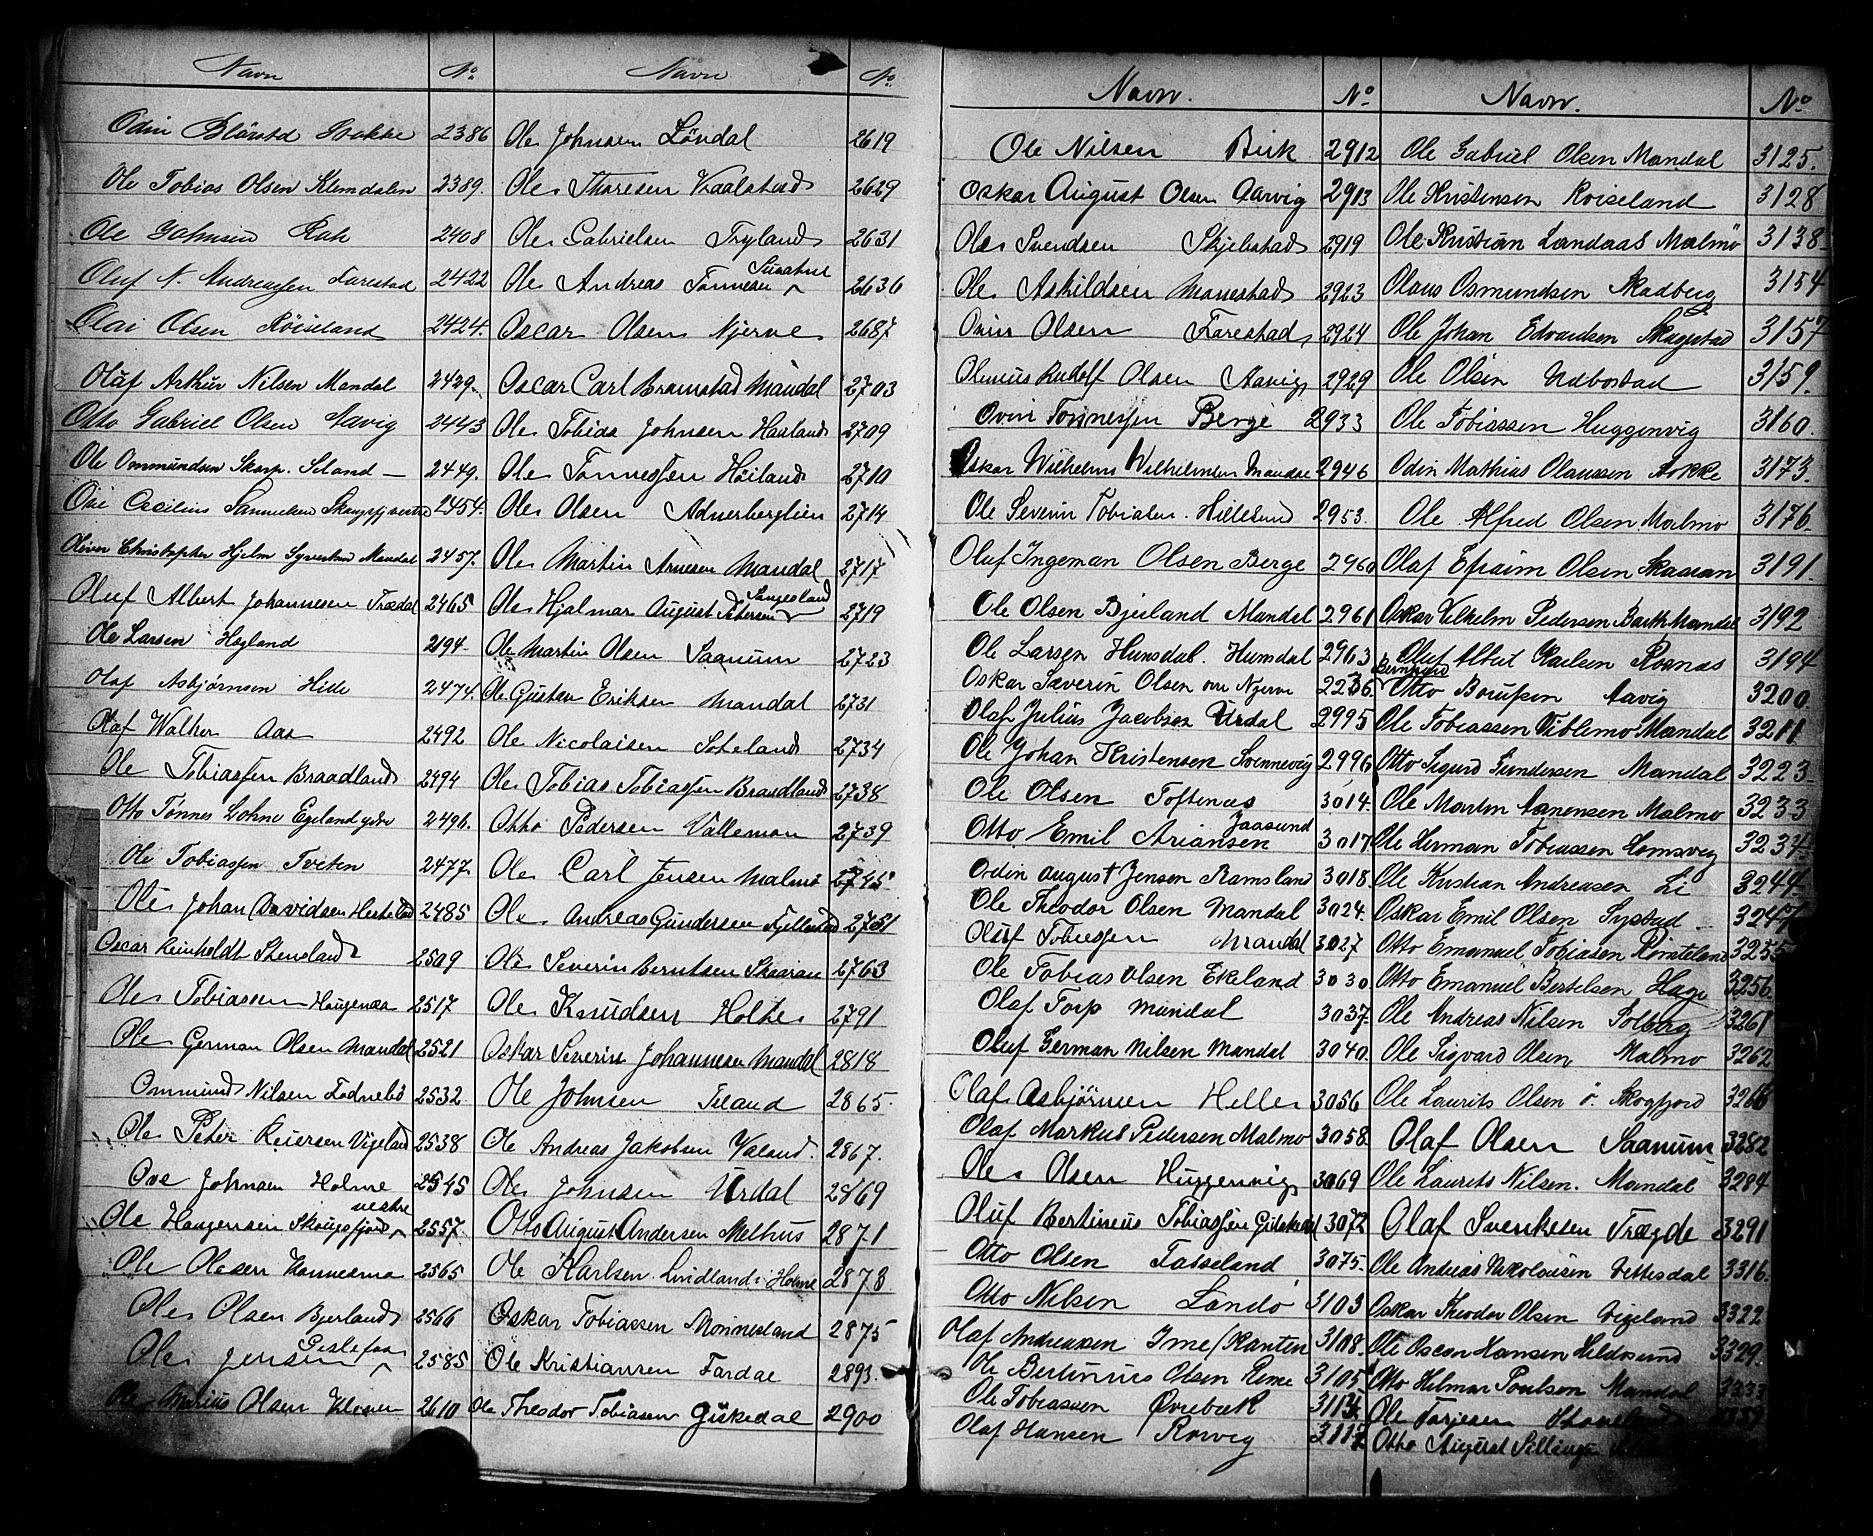 Navn No
Odin 2386
Ole Tobias Olsen Klemdalen 2389.
Ole Johnsen 2408
Oluf N. Andreassen Farestad 2422
Olai Olsen Röiseland 2424.
Oluf Arthur Nilsen Mandal 2429.
Otto Gabriel Olsen Aavig 2443
Ole Ommundsen Skarp. Seland 2449.
Ove Cecilius Samuelsen 2454.
Oliver Christopher Hjelm Syvertsen Mandal 2457.
Oluf Albert Johannesen Trædal 2465
Ole Larsen Hogland 2194
Olaf Asbjørnsen Hille 2474.
Olaf Walther Aas 2492
Ole Tobiassen Braadland 2494
Otto Tönnes Lohne Egeland ydre 2496.
Ole Tobiassen Tveten 2477.
Ole Johan Davidsen 2485
Oscar Reinholdt Stensland 2509
Ole Tobiassen Haugenæs 2517
Ole German Olsen Mandal 2521
Ommund Nilsen Fodnebö 2532
Ole Peter Reiersen Vigeland 2538
Ove Johnsen Holme 2545
vestre
Ole Haagensen Skougsfjord 2557.
Ole Olesen 2565
Ole Olsen Bjerland 2566
Geslefaa
Ole Jensen 2585
Ole Marius Olsen 2610
Navn No.
Ole Johnsen Löndal 2619
Ole Thoresen 2629
Ole Gabrielsen Tryland 2631
Ole Andreas Tönnesen 2636
Oscar Olsen Njerve 2687
Oscar Carl Bramstad Mandal 2703
Ole Tobias Johnsen Haaland 2709
Ole Tönnessen Höiland 2710
Ole Olsen 2714
Ole Martin Arnesen Mandal 2717
Sangesland
Ole Hjalmar August Petersen 2719
Ole Martin Olsen Saanum 2723
Ole Gustav Eriksen Mandal 2731
Ole Nicolaisen 2734
Ole Tobias Tobiassen Braadland 2738
Otto Pedersen Valleman 2739
Ole Carl Jensen Malmö 2745
Ole Andreas Gundersen Fjellestad 2751
Ole Severin Berntsen Skaaran 2763
Ole Knudsen Holte 2791
Oskar Severin Johannesen Mandal 2818
Ole Johnsen 2865.
Ole Andreas Jakobsen Valand. 2867.
Ole Johnsen Urdal 2869
Otto August Andersen Melhus 2871
Ole Karlsen. Lindland i Holme 2873
Oskar Tobiassen Mönnesland 2875
Ole Kristiansen Fardal 2893.
Ole Theodor Tobiasen Giskedal 2900
Navn. No
Ole Nilsen Birk 2912
Oskar August Olsen Aarvig 2913
Ole Svendsen Skjebstad 2919
Ole Askildsen 2923
Ovin Olsen Farestad 2924
Olenius Rudolf Olsen Aavig 2929
Ovin Tönnessen Berge 2933
Oskar Wilhelm Wilhelmsen Mandal 2946
Ole Severin Tobiasen. Hillesund 2953.
Oluf Ingeman Olsen Berge 2960
Ole Olsen Bjerland Mandal 2961
Ole Larsen Hunsdal. Humdal 2963
Oskar Severin Olsen Njerve 2236.
Olaf Julius Jacobsen Urdal 2995
Ole Johan Kristensen Svennevig 2996
Ole Olsen Toftenæs 3014.
Jaasund
Otto Emil Ariansen 3017
Odin August Jensen Ramsland 3018
Ole Theodor Olsen Mandal 3024.
Oluf Tobiessen Mandal 3027
Ole Tobias Olsen Ekeland 3030
Olaf Torp Mandal 3037.
Oluf German Nilsen Mandal 3040.
Olaf Asbjörnsen Helle 3056
Olaf Markus Pedersen Malmø 3058.
Ole Olsen Huggenvig 3069
Oluf Bertineus Tobiassen Giskedal 3072
Otto Olsen Tasseland 3075.
Otto Nilsen Landö 3103
Olaf Andreassen Ime/Kanten 3108.
Ole Bertinius Olsen Rime 3105
Ole Tobiassen Övrebæk 311
Olaf Hansen Rövig 311
Navn. No
Ole Gabriel Olsen Mandal 3125.
Ole Kristensen Roiseland 3128
Ole Kristian Landaas Malmö 3138.
Olaus Osmundsen Skadberg 3154
Ole Johan Edvardsen Skagestad 3157
Ole Olsen Udbostad 3159.
Ole Tobiassen Huggenvig 3160.
Odin Mathias Olaussen Stokke 3173.
Ole Alfred Olsen Malmö 3176.
Olaf Efraim Olsen Skaaran 3191.
Oskar Vilhelm Pedersen Barth Mandal 3192
Oluf Albert Karlsen Rosnæs 3194
Bernhard
Otto Aavig 3200.
Ole Tobiassen Viblemo Mandal 3211
Otto Sigurd Gundersen Mandal 3223
Ole Martin Aanensen Malmö 3233
Ole Herman Tobiassen Homsvig 3234.
Ole Kristian Andreasen Li 3244
Oskar Emil Olsen Systad 3247
Otto Emanuel Tobiasen 3255
Otto Emanuel Bertelsen Hage 3256.
Ole Andreas Nilsen Solberg 3261
Ole Sigvard Olsen Malmo 3262
Ole Laurits Olsen ö. Skogfjord 3266
Olaf Olsen Saanum 3282
Ole Laurits Nilsen. Mandal 3284
Olaf Svenksen Trægde 3291
Ole Andreas Nikolaisen Vettesdal 3316.
Oskar Theodor Olsen Vigeland 3322
Ole Oscar Hansen Hildosund 3329.
Otto Hilmar Poulsen Mandal 3333
Ole Tarjesen 3339
Otto August